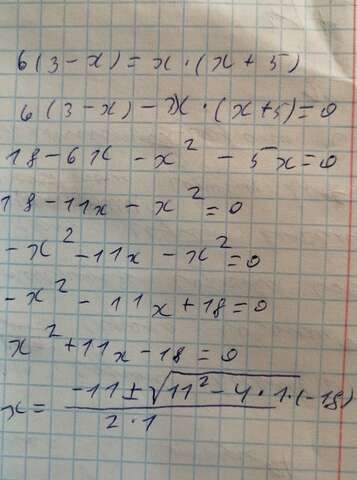 6(3-x)=x·(x+5)
6(3-x)-x·(x+5)=0
18-6x-x²-5x=0
18-11x-x²=0
-x²-11x-x²=0
-x²-11x+18=0
x²+11x-18=0
x= (-11±√(11²-4·1·(-18)))/(2·1)